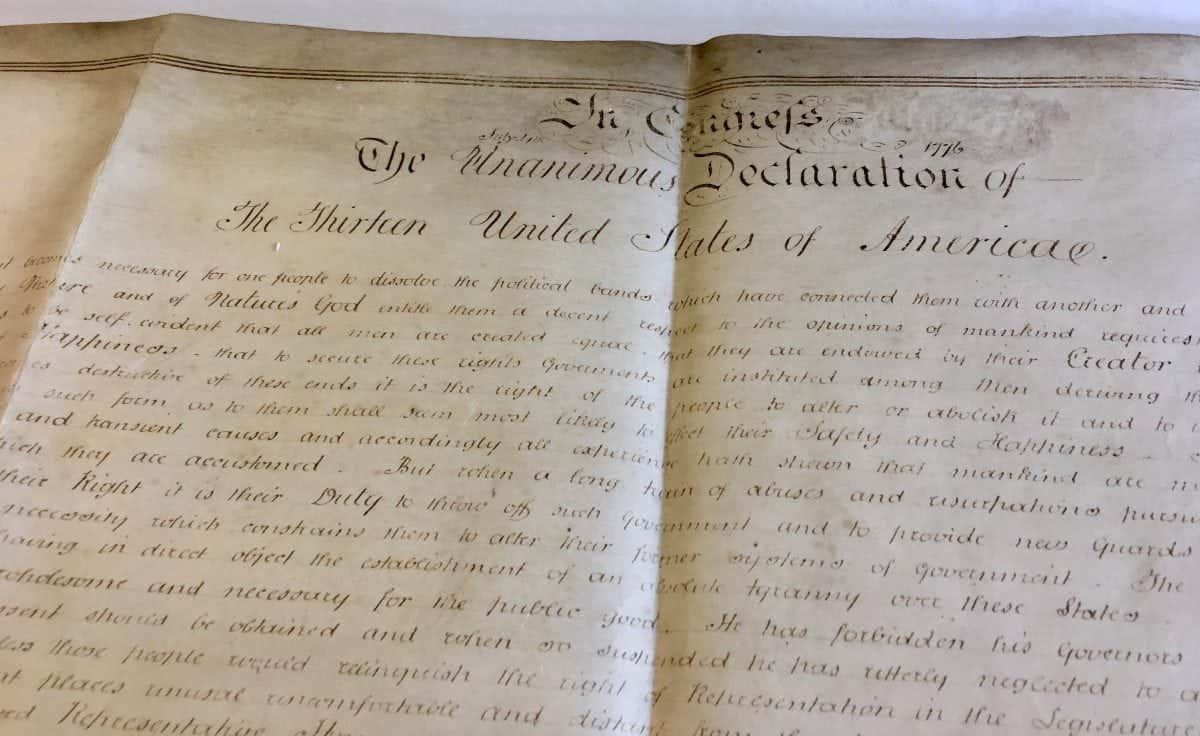 In Congress
July 4th 1776
The Unanimous Declaration of
The Thirteen United States of America.
becomes necessary for one people to dissolve the political bands which have connected them with another and
Nature and of Nature's God entitle them a decent respect to the opinions of mankind requires
to be self-evident that all men are created equal that they are endowed by their Creator
Happiness - that to secure these rights Goverments are instituted among Men deriving
destructive of these ends it is the right of the people to alter or abolish it and to
such form, as to them shall seem most likely to effect their Safety and Happiness -
and transient causes and accordingly all experience hath shewn that mankind are
which they are accustomed. But when a long train of abuses and usurpations
their Right it is their Duty to throw off such Government and to provide new Guards
necessity which constrains them to alter their former systems of Government. The
having in direct object the establishment of an absolute tyranny over these States
wholesome and necessary for the public good. He has forbidden his Governors
should be obtained and when so suspended he has utterly neglected to
those people would relinquish the right of Representation in the Legislature
places unusual uncomfortable and distant from
Representative